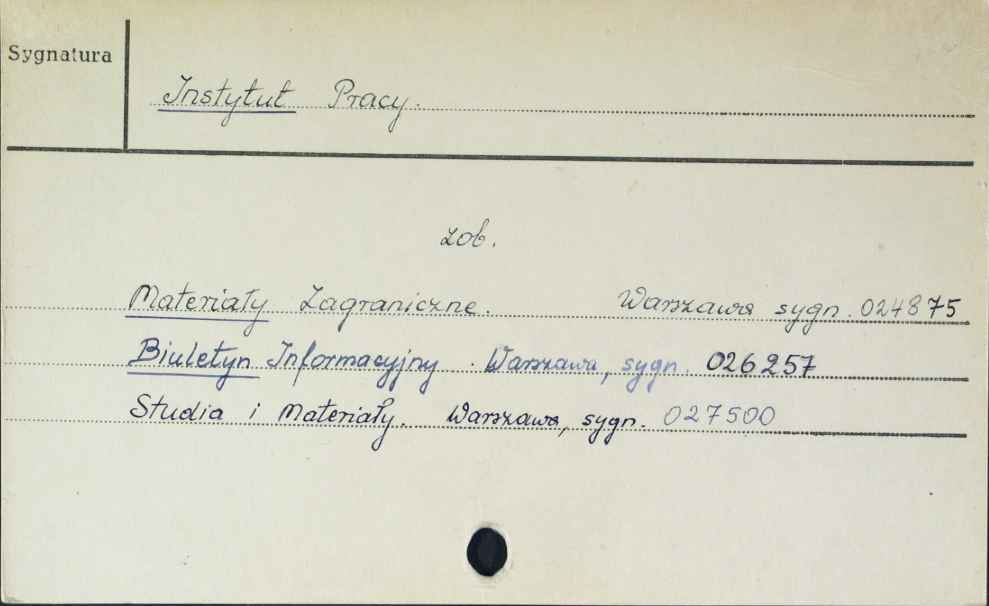 Sygnatura
Instytut Pracy.
zob.
Materiały Zagraniczne. Warszawa sygn. 024875
Biuletyn Informacyjny. Warszawa, sygn. 026257
Studia i Materiały. Warszawa, sygn. 027500